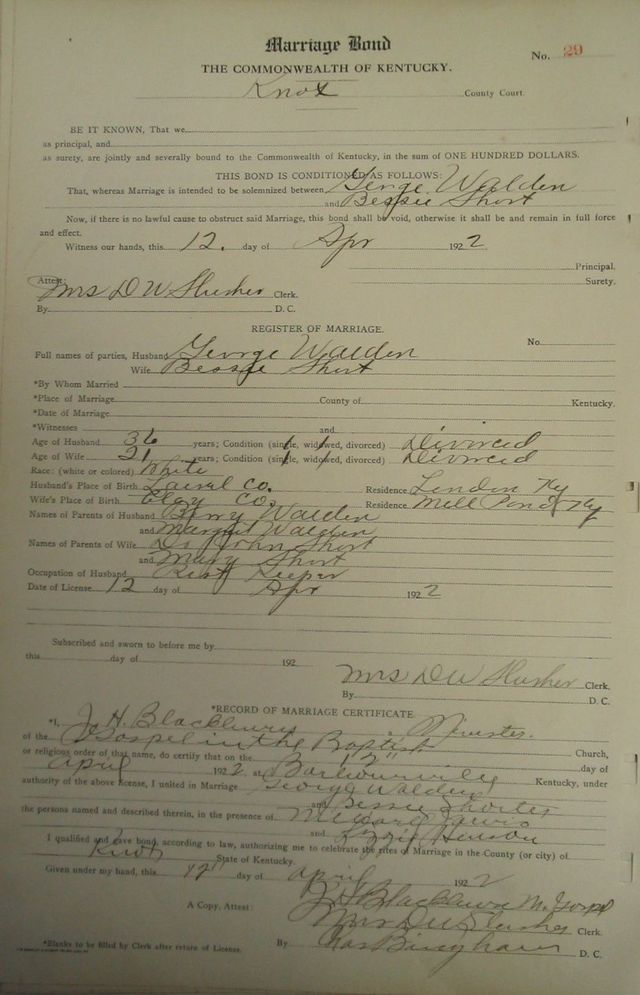 Marriage Bond
No. 29
THE COMMONWEALTH OF KENTUCKY.
Knox County Court.
BE IT KNOWN, That we
as principal, and
as surety, are jointly and severally bound to the Commonwealth of Kentucky, in the sum of ONE HUNDRED DOLLARS.
THIS BOND IS CONDITIONED AS FOLLOWS:
That, whereas Marriage is intended to be solemnized between George Walden
and Bessie Short
Now, if there is no lawful cause to obstruct said Marriage, this bond shall be void, otherwise it shall be and remain in full force
and effect.
Witness our hands, this 12. day of Apr 1922
Principal.
Attest: Surety.
Mrs D W Slusher Clerk.
By D. C.
REGISTER OF MARRIAGE.
No.
Full names of parties, Husband George Walden
Wife Bessie Short
*By Whom Married
*Place of Marriage County of Kentucky.
*Date of Marriage
*Witnesses and
Age of Husband 36 years; Condition (single, widowed, divorced) Divorced
Age of Wife 21 years; Condition (single, widowed, divorced) Divorced
Race: (white or colored) White
Husband's Place of Birth Laurel Co. Residence London Ky
Wife's Place of Birth Clay Co. Residence Mill Pond Ky
Names of Parents of Husband Walden
and Margret Walden
Names of Parents of Wife Dr John Short
and Mary Short
Occupation of Husband Rest Keeper
Date of License 12 day of Apr 1922
Subscribed and sworn to before me by
this day of 192
Mrs D W Slusher Clerk.
By D. C.
*RECORD OF MARRIAGE CERTIFICATE
*I, J. H. Blackburn, Minister
of the Gospel in the Baptist Church,
or religious order of that name, do certify that on the 12" day of
April 1922 at Barbourville Kentucky, under
authority of the above license, I united in Marriage George Walden
and Bessie Shorter
the persons named and described therein, in the presence of Lewis
and Lizzie Henson
I qualified and gave bond, according to law, authorizing me to celebrate the rites of Marriage in the County (or city) of
Knox State of Kentucky.
Given under my hand, this 12" day of April 1922
J H Blackburn M. Gospel
A Copy, Attest: Mrs D W Slusher Clerk.
*Blanks to be filled by Clerk after return of License. By Chas Bingham D. C.